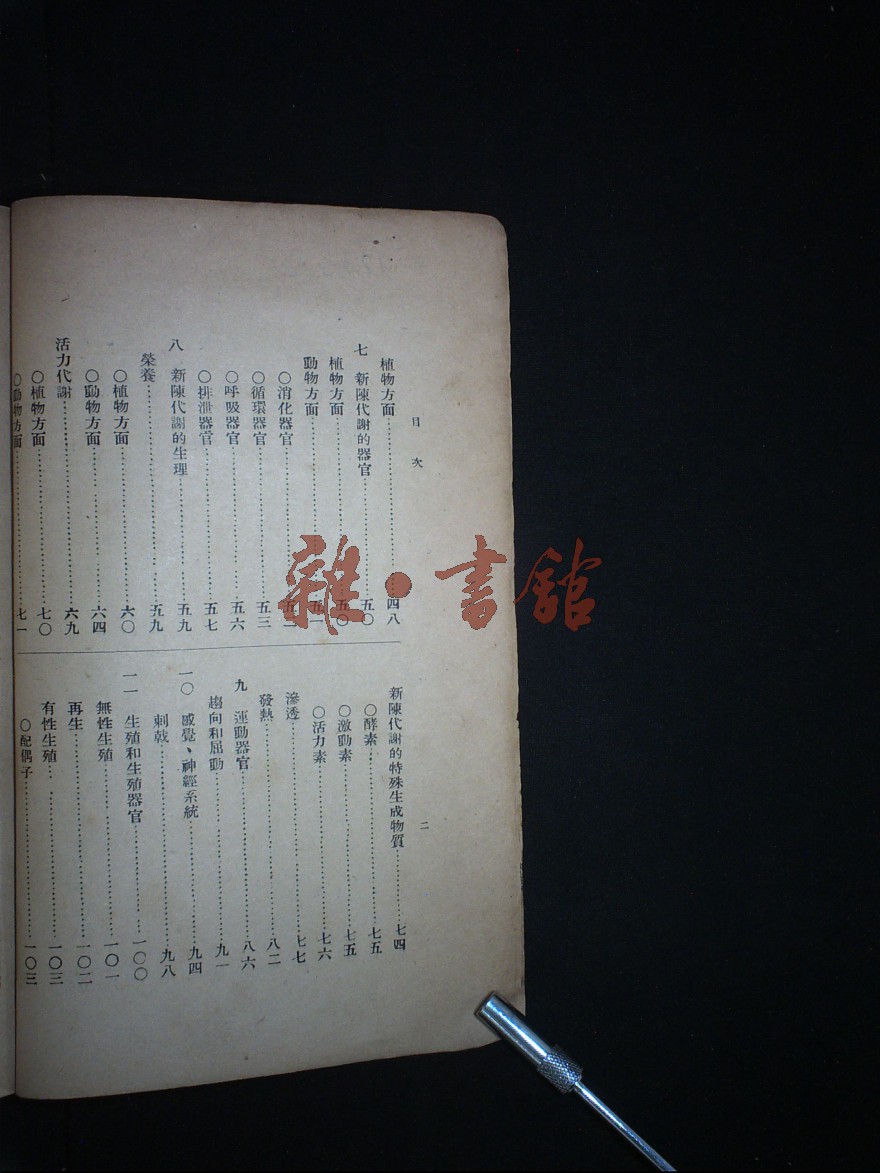 目次
植物方面……四八
七 新陳代謝的器官……五〇
植物方面……五〇
動物方面……五一
〇消化器官……五二
〇循環器官……五三
〇呼吸器官……五六
〇排泄器官……五七
八 新陳代謝的生理……五九
榮養……五九
〇植物方面……六〇
〇動物方面……六四
活力代謝……六九
〇植物方面……七〇
〇動物方面……七一
二
新陳代謝的特殊生成物質……七四
〇酵素……七五
〇激動素……七五
〇活力素……七六
滲透……七七
發熱……八二
九 運動器官……八六
趨向和屈動……九一
一〇 感覺、神經系統……九四
刺戟……九八
一一 生殖和生殖器官……一〇〇
無性生殖……一〇一
再生……一〇二
有性生殖……一〇三
〇配偶子……一〇三
雜·書館